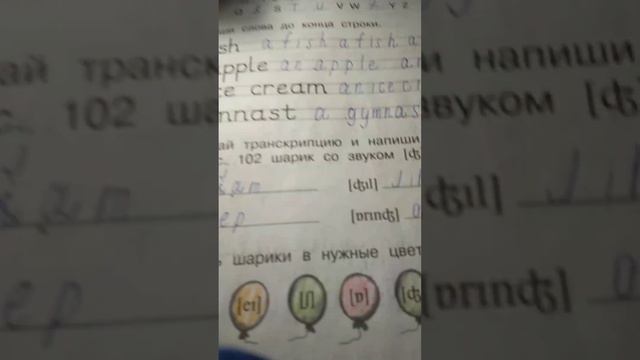 S T U V W X Y Z
ши слова до конца строки.
sh a fish a fish a
apple an apple an
ce cream an ice cr
mnast a gymnas
ай транскрипцию и напиши
с. 102 шарик со звуком [ʤ
am [ʤɪl] Jil
ep [ɒrɪnʤ] o
ь шарики в нужные цвет
[eɪ] [ʃ] [ɒ] [ʤ